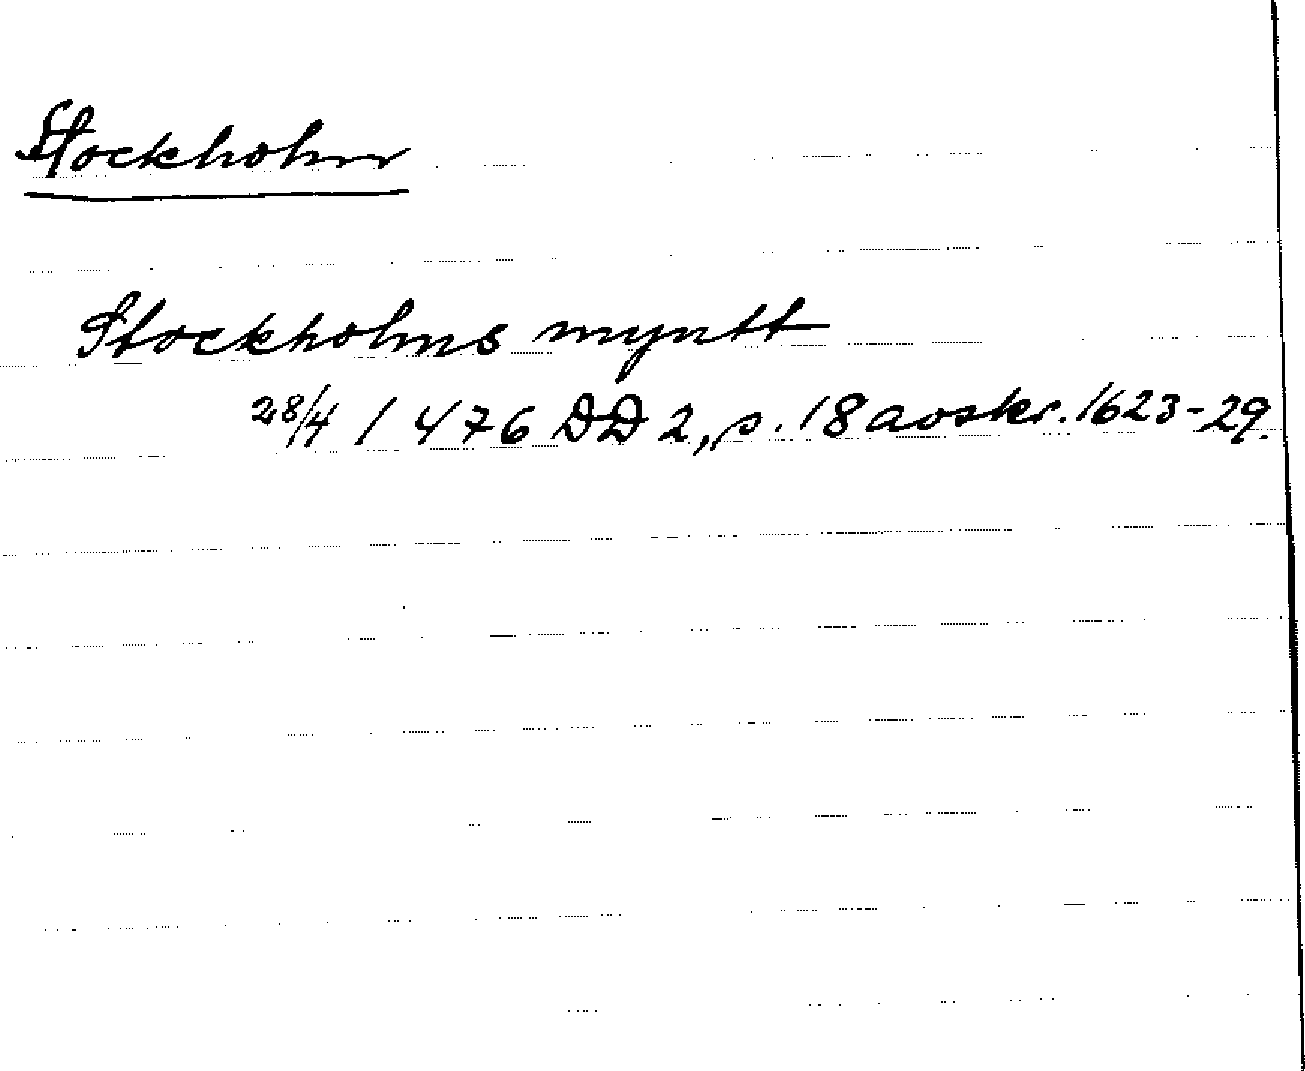 Stockholm
Stockholms myntt
28/4 1476 DD 2, s. 18 avskr. 1623-29.